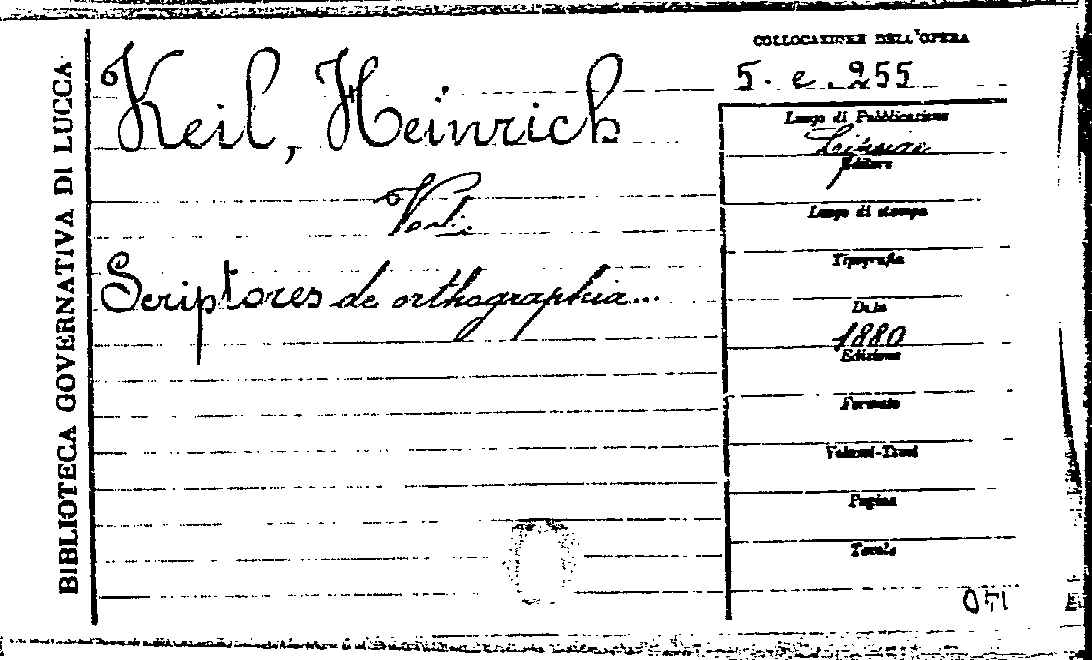 BIBLIOTECA GOVERNATIVA DI LUCCA
Keil, Heinrich
Scriptores de orthographia...
COLLOCAZIONE DELL'OPERA
5. e. 255
Luogo di Pubblicazione
Lipsiae
Editore
Luogo di stampa
Tipografia
Data
1880
Edizione
Formato
Volumi-Tomi
Pagine
Tavole